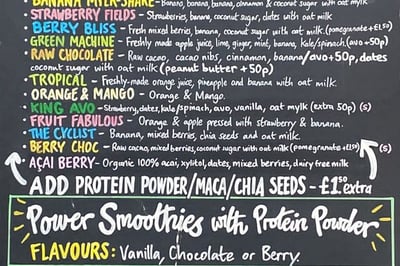 BANANA MYLK-SHAKE - Banana, banana, banana, cinnamon & coconut sugar with oat mylk
• STRAWBERRY FIELDS - Strawberries, banana, coconut sugar, dates with oat milk
• BERRY BLISS - Fresh mixed berries, banana, coconut sugar, with oat milk (pomegranate +£1.50)
• GREEN MACHINE - Freshly made apple juice, lime, ginger, mint, banana, kale/spinach (avo +50p)
• RAW CHOCOLATE - Raw cacao, cacao nibs, cinnamon, banana/avo +50p, dates
coconut sugar with oat milk (peanut butter + 50p)
• TROPICAL - Freshly-made orange juice, pineapple and banana with oat milk.
• ORANGE & MANGO - Orange & Mango.
• KING AVO - Strawberry, dates, kale/spinach, avo, vanilla, oat mylk (extra 50p) (S)
• FRUIT FABULOUS - Orange & apple pressed with strawberry & banana.
• THE CYCLIST - Banana, mixed berries, chia seeds and oat milk.
• BERRY CHOC - Raw cacao, mixed berries, coconut sugar with oat milk (pomegranate +£1.50) (S)
• AÇAI BERRY - Organic 100% acai, xylitol, dates, mixed berries, dairy free milk
ADD PROTEIN POWDER/MACA/CHIA SEEDS - £1.50 extra
Power Smoothies with Protein Powder
FLAVOURS: Vanilla, Chocolate or Berry.